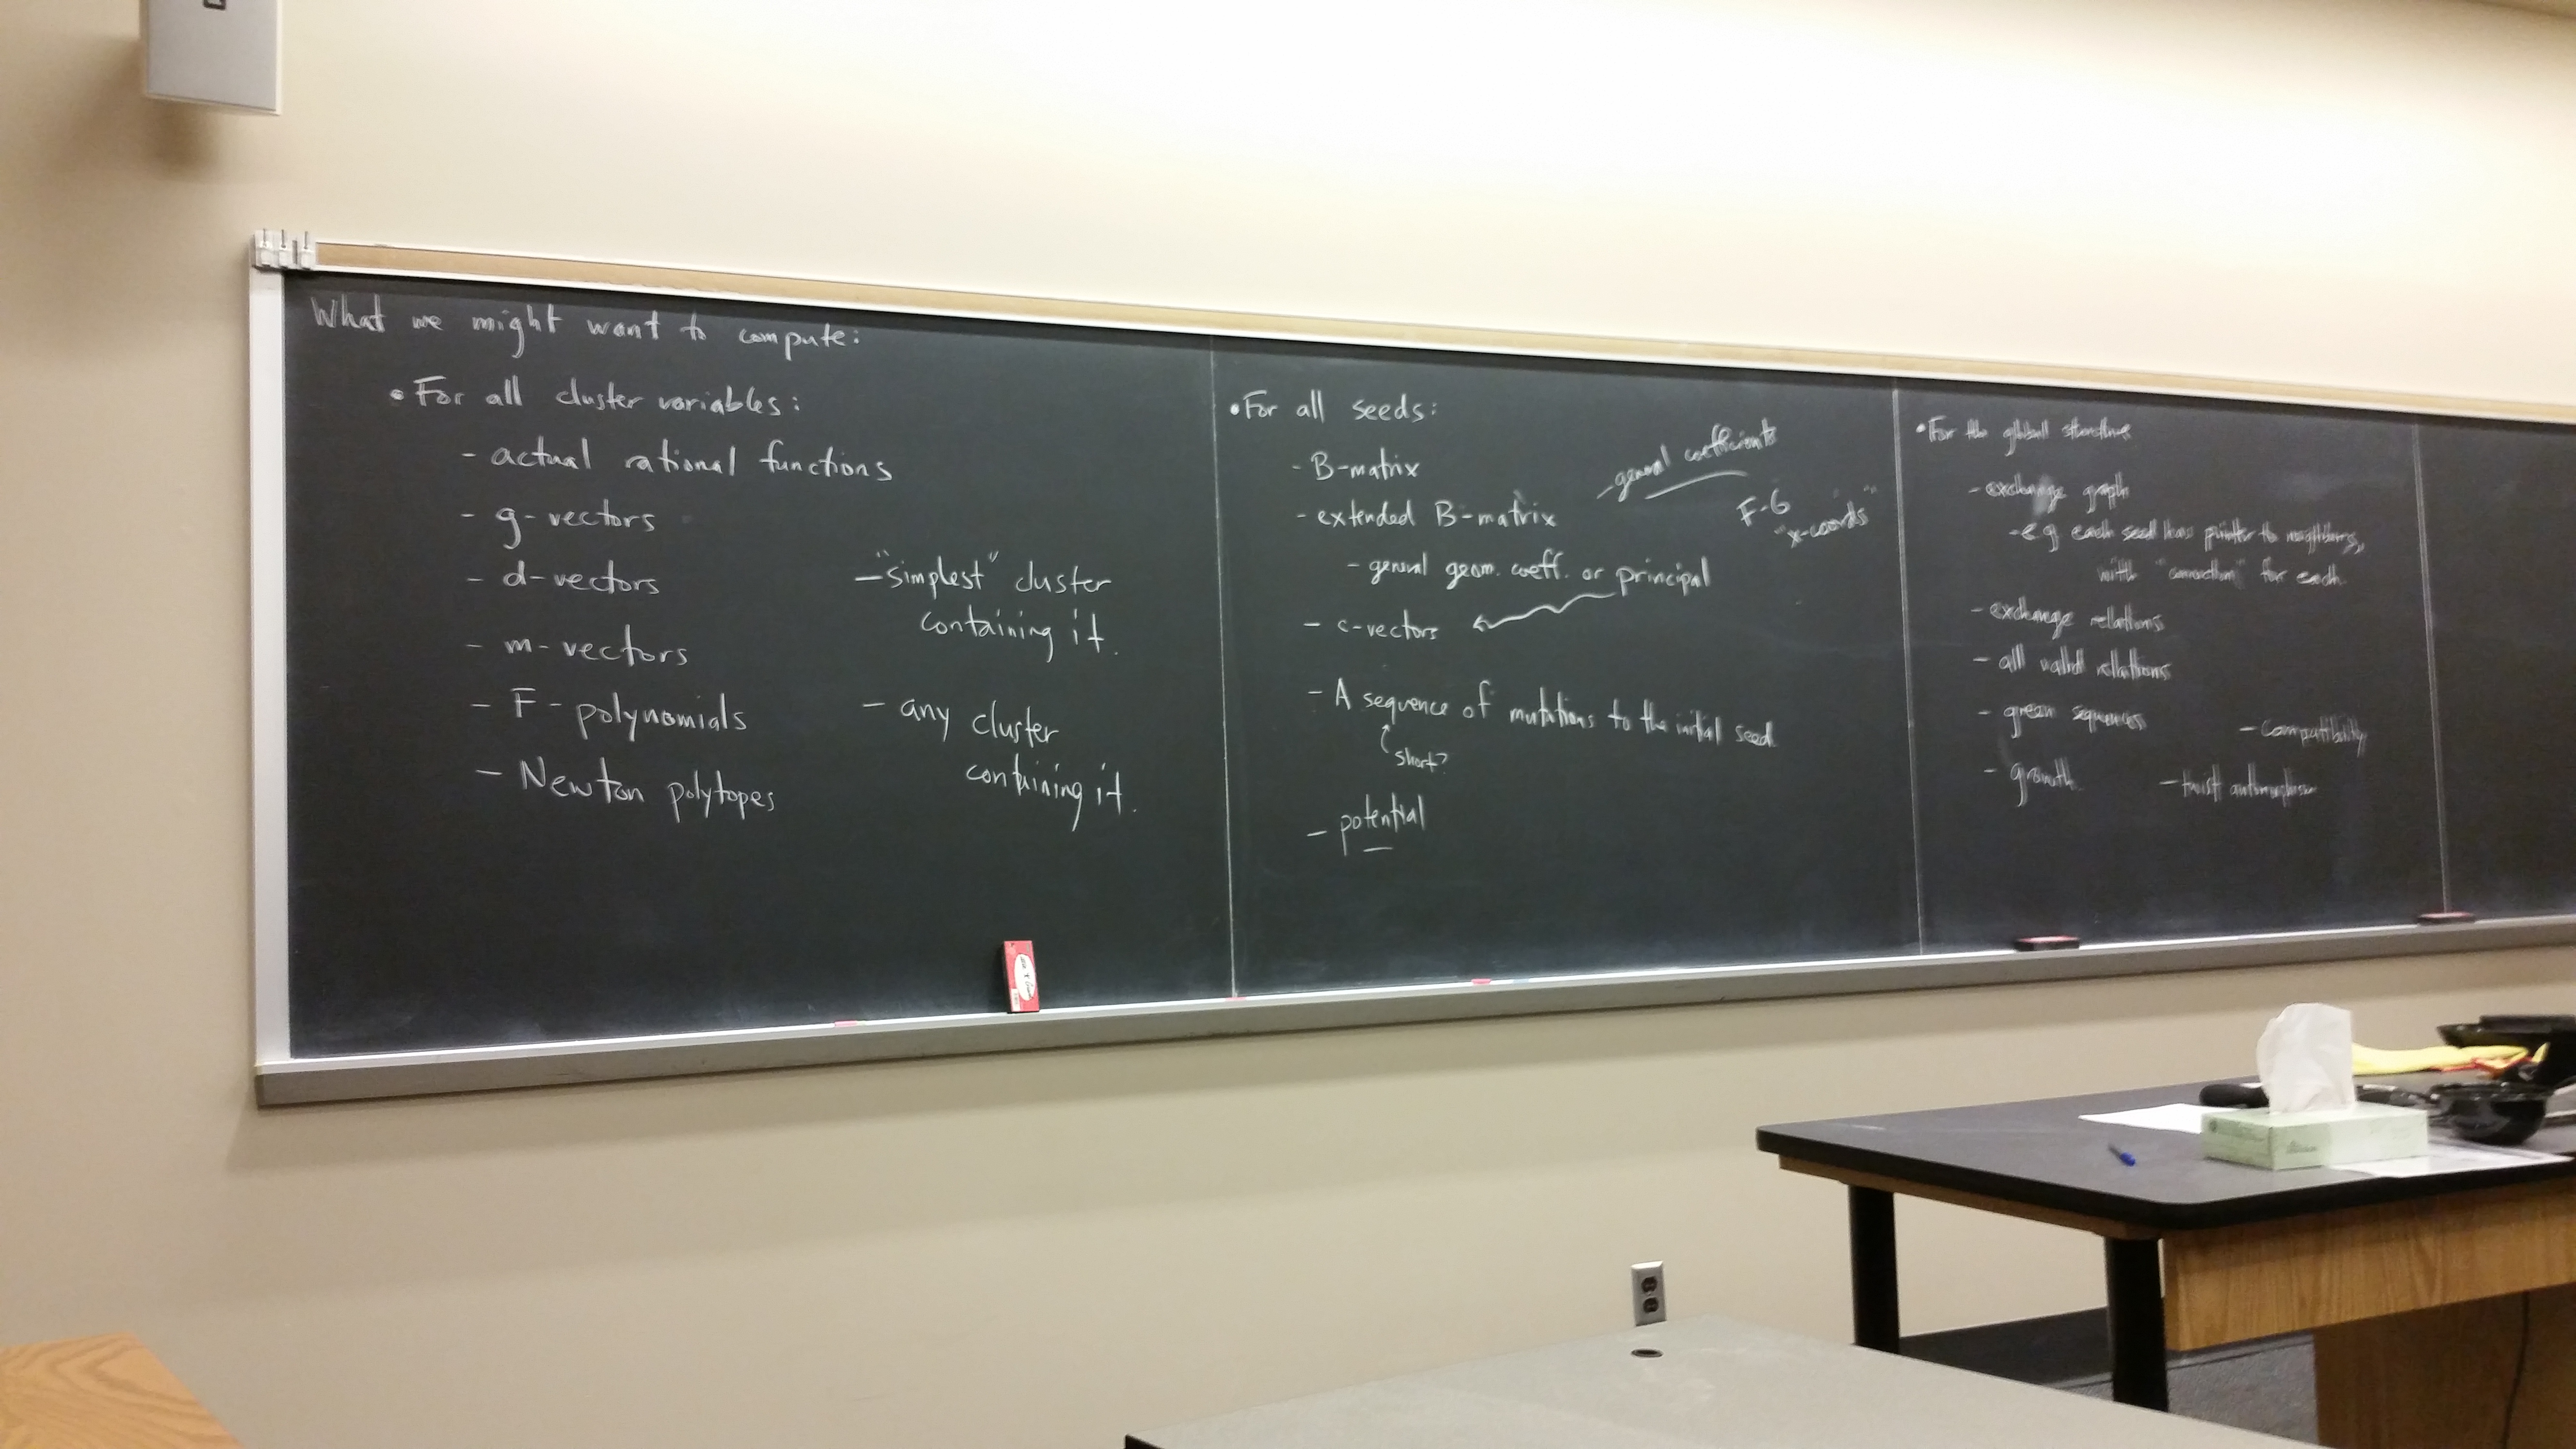 What we might want to compute:
• For all cluster variables:
- actual rational functions
- g-vectors
- d-vectors
- m-vectors
- F-polynomials
- Newton polytopes
- "simplest" cluster
containing it.
- any cluster
containing it.
• For all seeds:
- B-matrix
- extended B-matrix
- general geom. coeff. or principal
- c-vectors
- A sequence of mutations to the initial seed
short?
- potential
- general coefficients
F-G
"x-coords"
• For the global structure
- exchange graph
- e.g. each seed has pointer to neighbors,
with "connection" for each.
- exchange relations
- all valid relations
- green sequences
- growth
- compatibility
- twist automorphism